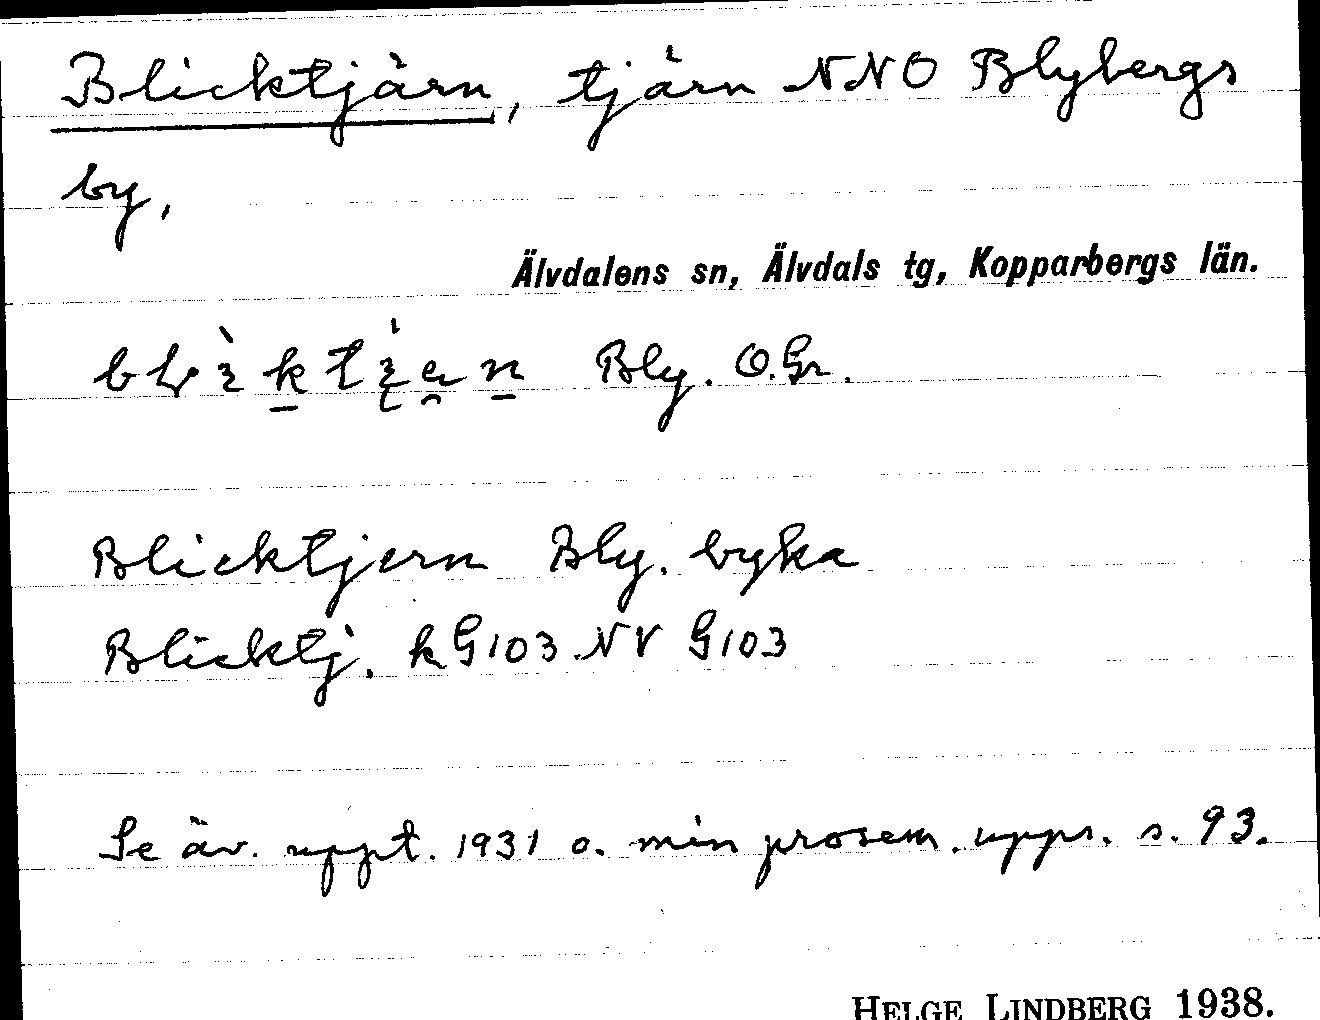 Blicktjärn, tjärn NNO Blybergs
by,
Älvdalens sn, Älvdals tg, Kopparbergs län.
Bly. O.Gr.
Blicktjern Bly. byka
Blicktj. kG103 NV G103
Se äv. uppt. 1931 o. min prosem. upps. s. 93.
HELGE LINDBERG 1938.